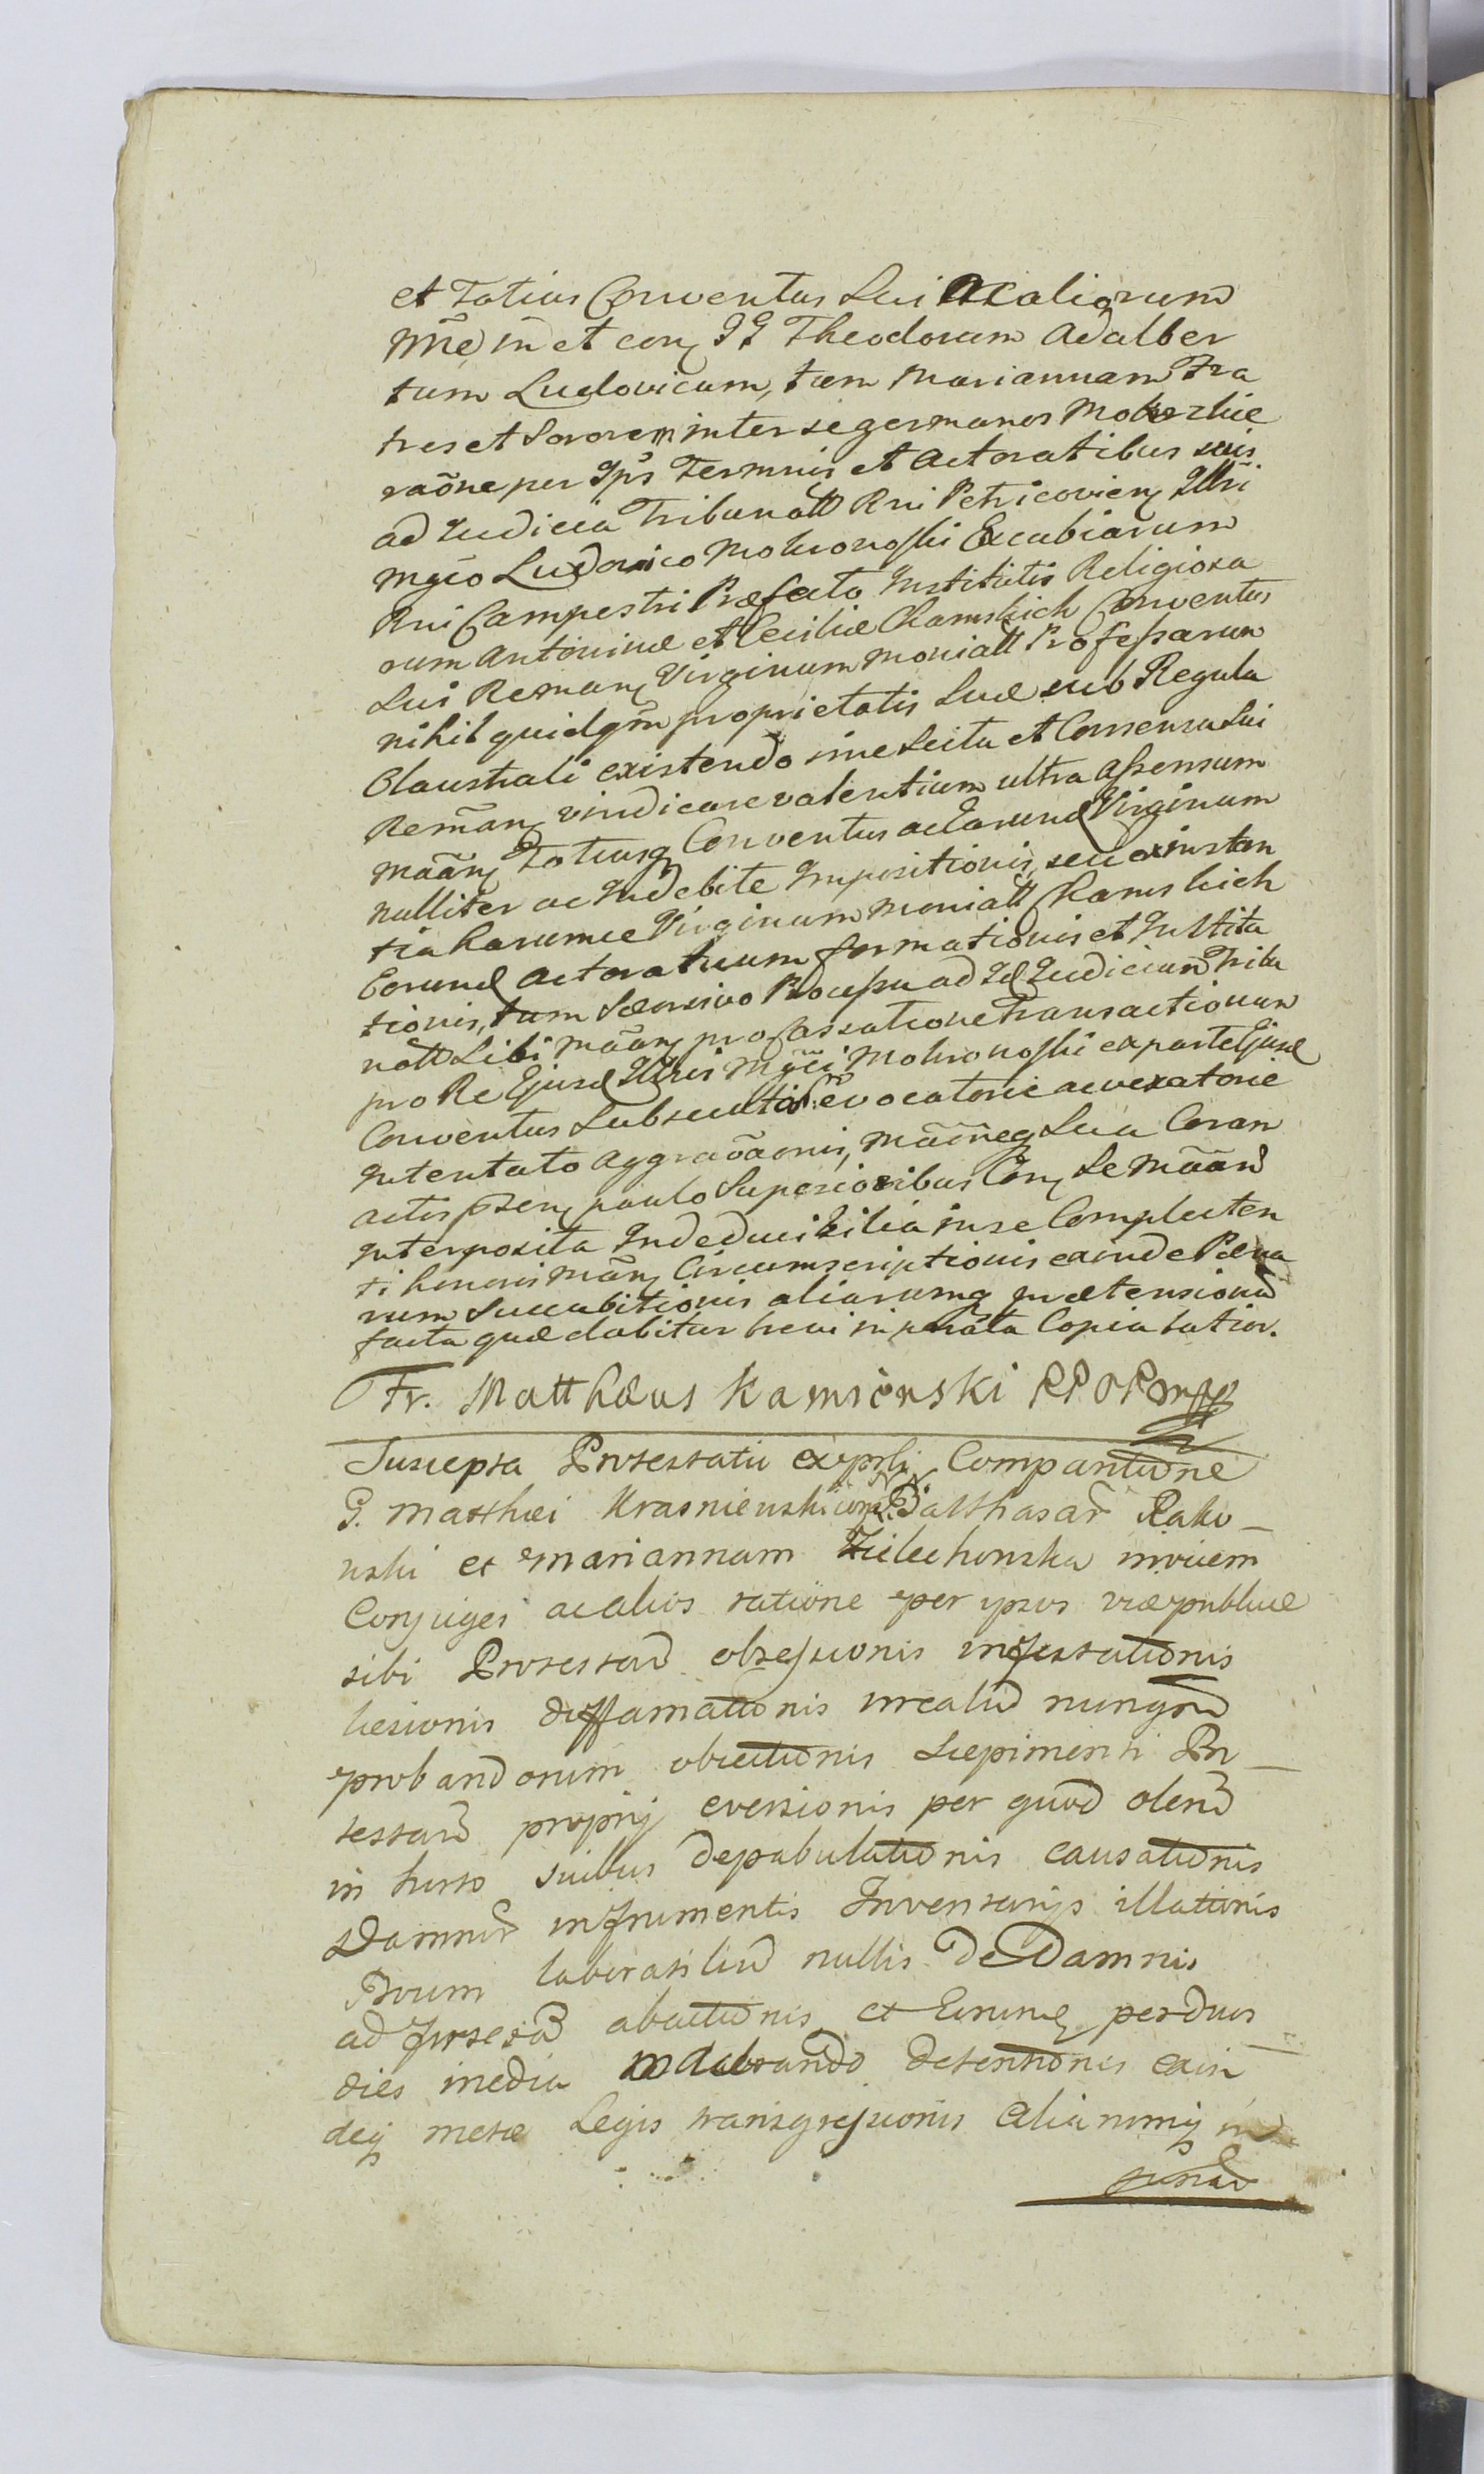 et Totius Conventus Sui ac aliorum
Nne in et con GG Theodorum Adalber
tum Ludovicum, tam Mariannam Fra
tres et Sororem inter se germanos
raõne per Ips Terminis et Actoratibus suis
ad Judicia Tribunatt Rni Petricovien Illri
Mgco Ludovico Mokronoski Excubiarum
Rni Campestri Præfecto Institutis Religiosa
rum Antoninæ et Ceciliæ Chamskich Conventus
Sui Reman Virginum Moniatt Professarum
nihil quidqm proprietatis Suæ sub Regula
Claustrali existendo sine Scitu et Consensu Sui
Remãn vindicare valentium ultra Assensum
Mãan Totiusq Conventus ac Earund Virginum
nulliter ac Indebite Impositionis, seu ex instan
tia harumce Virginum Moniatt Chamskich
Eorund Actoratuum formationis et Institu
tionis, tum Seorsivo Processu ad Id Judicium Tribu
natt Sibi Mãan pro Cassatione Transactionum
pro Re Ejusd Illris Mgci Mokronoski ex parte Ejusd
Conventus Subsecutis evocatorie ac vexatorie
Intentato Aggravãonis, Mãineq Sua Coram
actis psen paulo Superioribus Con Se Mãand
Interposita Indeducibilia in se Complecten
ti honoris Mãn Circumscriptionis exinde Pæna
rum Succubitionis aliarumq prætensionu
facta quæ dabitur brevi in pnata Copia latior.
Fr. Matthæus Kamienski
Suscepta Protestatio ex psli Comparitione
G. Matthæi Krasnienski con Balthasar Rako-
uski et Mariannam Zielechonska invicem
Conjuges ac alios ratione per ipsos viæ publicæ
sibi Protestand obsessionis infestationis
læsionis diffamationis in realid nunqm
probandorum obiectionis Sæpimenti Pro-
testand proprij eversionis per quod olerud
in horto suibus depabulationis causationis
Damnor in frumentis Inventarijs illationis
Boum laboratilid nullis De Damnis
ad abactionis et Eorund per duos
dies inedia detentionis exin
deq metæ Legis transgressionis Aliarumq in